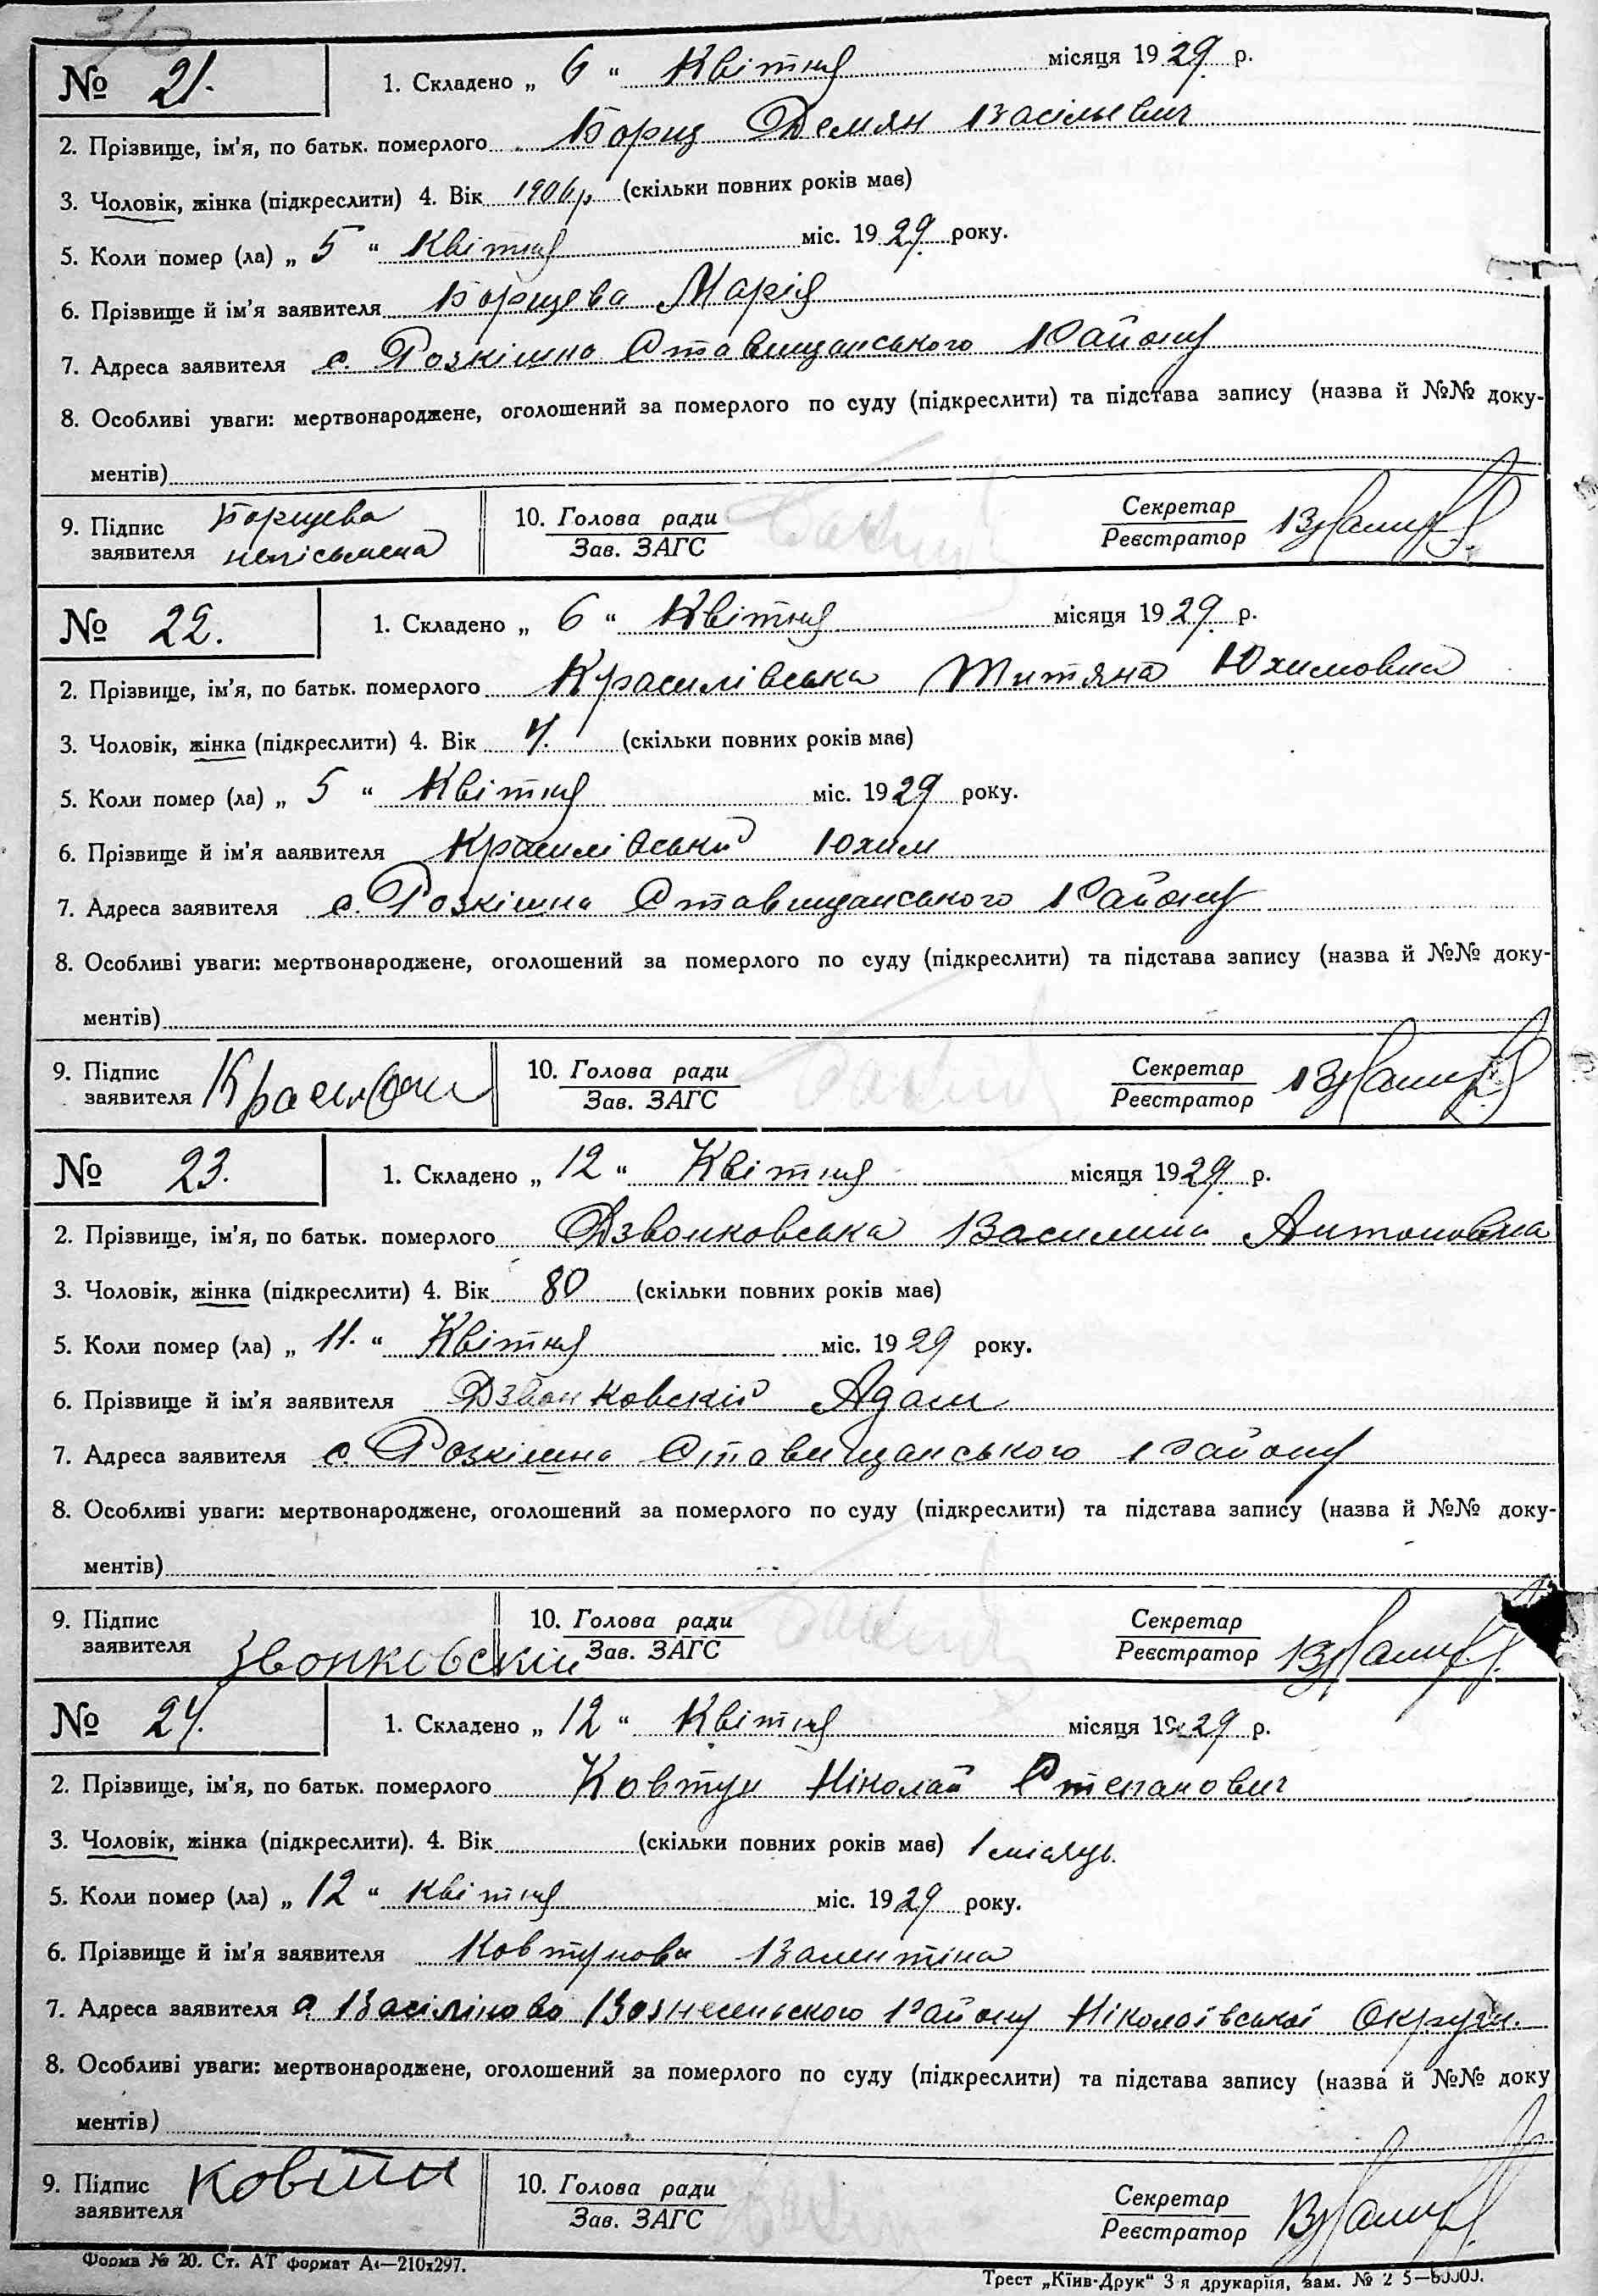 № 21. 1. Складено „ 6 “ Квітня місяця 1929 р.
2. Прізвище, ім'я, по батьк. померлого Борщ Демян Васільевич
3. Чоловік, жінка (підкреслити) 4. Вік 1906 р (скільки повних років має)
5. Коли помер (ла) „ 5 “ Квітня міс. 1929 року.
6. Прізвище й ім'я заявителя Борщева Марія
7. Адреса заявителя с. Розкішна Ставищанського Району
8. Особливі уваги: мертвонароджене, оголошений за померлого по суду (підкреслити) та підстава запису (назва й №№ доку-
ментів)
9. Підпис заявителя Борщева неписьмена 10. Голова ради Зав. ЗАГС Секретар Реєстратор
№ 22. 1. Складено „ 6 “ Квітня місяця 1929 р.
2. Прізвище, ім'я, по батьк. померлого Красилівська Титяна Юхимовна
3. Чоловік, жінка (підкреслити) 4. Вік 4. (скільки повних років має)
5. Коли помер (ла) „ 5 “ Квітня міс. 1929 року.
6. Прізвище й ім'я ааявителя Красилівський Юхим
7. Адреса заявителя с. Розкішна Ставищанського Району
8. Особливі уваги: мертвонароджене, оголошений за померлого по суду (підкреслити) та підстава запису (назва й №№ доку-
ментів)
9. Підпис заявителя 10. Голова ради Зав. ЗАГС Секретар Реєстратор
№ 23. 1. Складено „ 12 “ Квітня місяця 1929 р.
2. Прізвище, ім'я, по батьк. померлого Дзвонковська Василина Антоновна
3. Чоловік, жінка (підкреслити) 4. Вік 80 (скільки повних років має)
5. Коли помер (ла) „ 11. “ Квітня міс. 1929 року.
6. Прізвище й ім'я заявителя Дзвонковскій Адам
7. Адреса заявителя с Розкішна Ставищанського Району
8. Особливі уваги: мертвонароджене, оголошений за померлого по суду (підкреслити) та підстава запису (назва й №№ доку-
ментів)
9. Підпис заявителя Звонковскій 10. Голова ради Зав. ЗАГС Секретар Реєстратор
№ 24. 1. Складено „ 12 “ Квітня місяця 1929 р.
2. Прізвище, ім'я, по батьк. померлого Ковтун Ніколай Степанович
3. Чоловік, жінка (підкреслити). 4. Вік (скільки повних років має) 1 місяць.
5. Коли помер (ла) „ 12 “ Квітня міс. 1929 року.
6. Прізвище й ім'я заявителя Ковтунова Валентіна
7. Адреса заявителя с. Васіліново Вознесеньского Району Ніколоївської Округи.
8. Особливі уваги: мертвонароджене, оголошений за померлого по суду (підкреслити) та підстава запису (назва й №№ доку
ментів)
9. Підпис заявителя Ковтун 10. Голова ради Зав. ЗАГС Секретар Реєстратор
Форма № 20. Ст. АТ формат А4—210х297.
Трест „Київ-Друк“ 3-я друкарня, зам. №